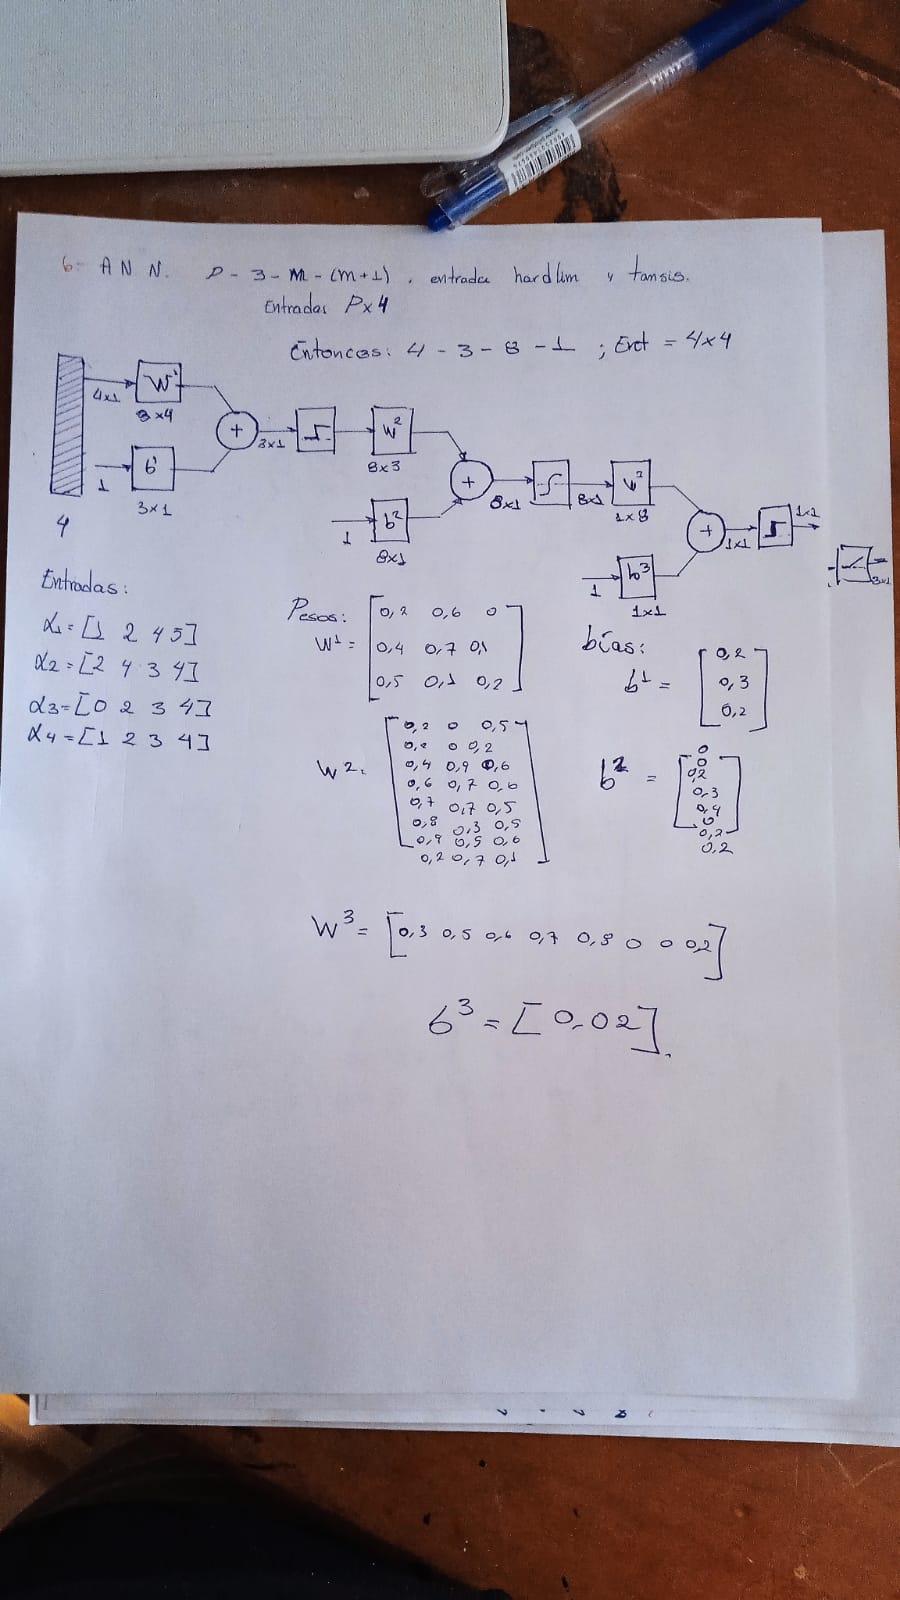 6- A N N. P - 3 - M - (M+1). entrada hardlim y tansis.
Entradas Px4
Entonces: 4 - 3 - 8 - 1 ; Ent = 4x4
4x1 W¹
3x4
+ 3x1 W²
8x3
1 b¹
3x1
4
1 b²
8x1
+ 8x1 8x1
1x8
+ 1x1 1x1
1 b³
1x1
3x1
Entradas:
α1=[1 2 4 5]
α2=[2 4 3 4]
α3=[0 2 3 4]
α4=[1 2 3 4]
Pesos:
W¹ =
0,2 0,6 0
0,4 0,7 0,1
0,5 0,1 0,2
bías:
b¹ =
0,2
0,3
0,2
W².
0,2 0 0,5
0,2 0 0,2
0,4 0,9 0,6
0,6 0,7 0,6
0,7 0,7 0,5
0,8 0,3 0,5
0,9 0,5 0,6
0,2 0,7 0,1
b² =
0
0
0,2
0,3
0,4
0
0,2
0,2
W³= [0,3 0,5 0,6 0,7 0,8 0 0 0,2]
b³ = [0,02].